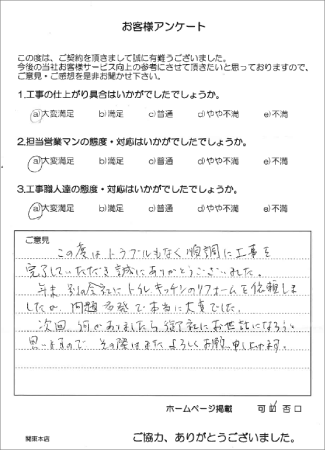 お客様アンケート
この度は、ご契約を頂きまして誠に有難うございました。
今後の当社お客様サービス向上の参考にさせて頂きたいと思っておりますので、
ご意見・ご感想を是非お聞かせ下さい。
1.工事の仕上がり具合はいかがでしたでしょうか。
a)大変満足 b)満足 c)普通 d)やや不満 e)不満
2.担当営業マンの態度・対応はいかがでしたでしょうか。
a)大変満足 b)満足 c)普通 d)やや不満 e)不満
3.工事職人達の態度・対応はいかがでしたでしょうか。
a)大変満足 b)満足 c)普通 d)やや不満 e)不満
ご意見
この度はトラブルもなく順調に工事を
完了していただき誠にありがとうございました。
年末、別の会社にトイレ、キッチンのリフォームを依頼しま
したが、問題 で本当に大変でした。
次回、何かありましたら御社にお世話になろうと
思いますので、その際はまたよろしくお願い申し上げます。
ホームページ掲載 可 否 口
関東本店
ご協力、ありがとうございました。